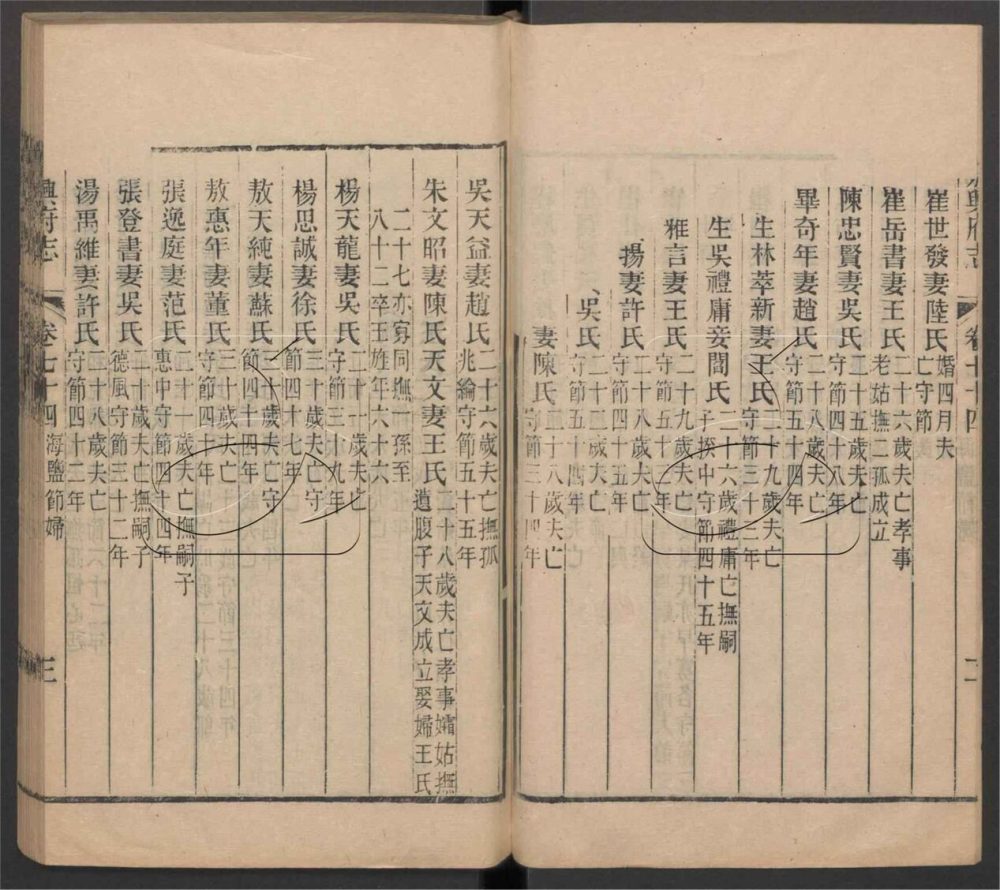 崔世發妻陸氏婚四月夫亡守節
崔岳書妻王氏二十六歲夫亡孝事老姑撫二孤成立
陳忠賢妻吳氏二十五歲夫亡守節
畢奇年妻趙氏二十八歲夫亡守節五十四年
生林萃新妻王氏二十九歲夫亡守節
生吳禮庸妾閻氏二十六歲禮庸亡撫嗣子揆中守節四十五年
雅言妻王氏二十九歲夫亡守節五十
揚妻許氏二十八歲夫亡守節四十五年
吳氏歲夫亡守節五十四年
妻陳氏二十八歲夫亡守節三十四年
卷七十四
二
吳天益妻趙氏二十六歲夫亡撫孤兆綸守節五十五年
朱文昭妻陳氏天文妻王氏二十八歲夫亡孝事孀姑撫遺腹子天文成立娶婦王氏
二十七亦寡同撫一孫至八十二卒王旌年六十六
楊天龍妻吳氏二十一歲夫亡守節三十九年
楊思誠妻徐氏三十歲夫亡守節四十七年
敖天純妻蘇氏三十歲夫亡守節四十四年
敖惠年妻董氏三十歲夫亡守節四十年
張逸庭妻范氏二十一歲夫亡撫嗣子惠中守節四十四年
張登書妻吳氏二十歲夫亡撫嗣子德風守節三十二年
湯禹維妻許氏二十八歲夫亡守節四十二年
興府志
卷七十四
海鹽節婦
三